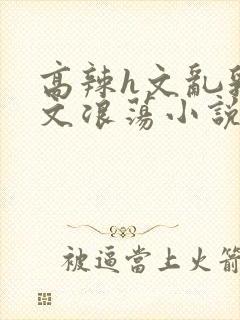 高辣h文亂
文浪蕩小說
被逼當上火箭